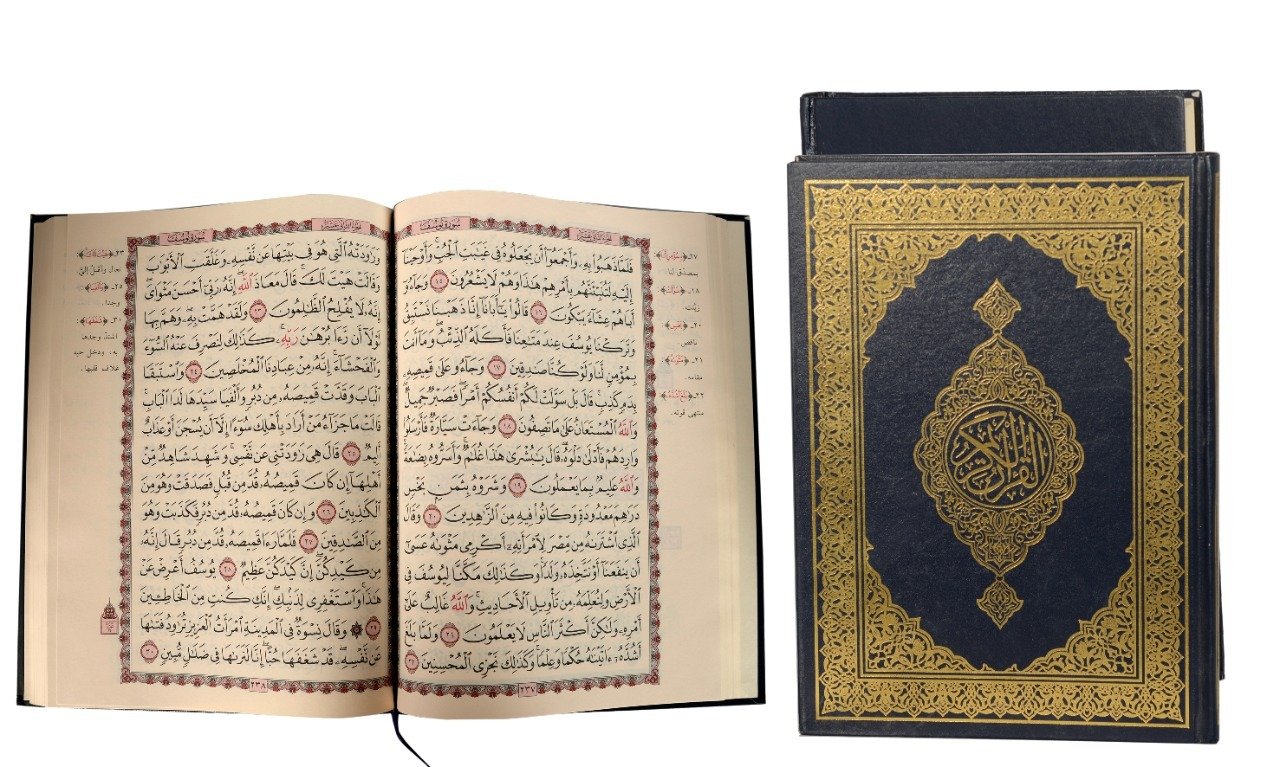 سُورَةُ يُوسُفَ
فَلَمَّا ذَهَبُوا۟ بِهِۦ وَأَجْمَعُوٓا۟ أَن يَجْعَلُوهُ فِى غَيَـٰبَتِ ٱلْجُبِّ ۚ وَأَوْحَيْنَآ
إِلَيْهِ لَتُنَبِّئَنَّهُم بِأَمْرِهِمْ هَـٰذَا وَهُمْ لَا يَشْعُرُونَ ١٥ وَجَآءُوٓ
أَبَاهُمْ عِشَآءً يَبْكُونَ ١٦ قَالُوا۟ يَـٰٓأَبَانَآ إِنَّا ذَهَبْنَا نَسْتَبِقُ
وَتَرَكْنَا يُوسُفَ عِندَ مَتَـٰعِنَا فَأَكَلَهُ ٱلذِّئْبُ ۖ وَمَآ أَنتَ
بِمُؤْمِنٍ لَّنَا وَلَوْ كُنَّا صَـٰدِقِينَ ١٧ وَجَآءُو عَلَىٰ قَمِيصِهِۦ
بِدَمٍ كَذِبٍ ۚ قَالَ بَلْ سَوَّلَتْ لَكُمْ أَنفُسُكُمْ أَمْرًا ۖ فَصَبْرٌ جَمِيلٌ ۖ
وَٱللَّهُ ٱلْمُسْتَعَانُ عَلَىٰ مَا تَصِفُونَ ١٨ وَجَآءَتْ سَيَّارَةٌ فَأَرْسَلُوا۟
وَارِدَهُمْ فَأَدْلَىٰ دَلْوَهُۥ ۖ قَالَ يَـٰبُشْرَىٰ هَـٰذَا غُلَـٰمٌ ۚ وَأَسَرُّوهُ بِضَـٰعَةً ۚ
وَٱللَّهُ عَلِيمٌۢ بِمَا يَعْمَلُونَ ١٩ وَشَرَوْهُ بِثَمَنٍۭ بَخْسٍ
دَرَٰهِمَ مَعْدُودَةٍ وَكَانُوا۟ فِيهِ مِنَ ٱلزَّٰهِدِينَ ٢٠ وَقَالَ
ٱلَّذِى ٱشْتَرَىٰهُ مِن مِّصْرَ لِٱمْرَأَتِهِۦٓ أَكْرِمِى مَثْوَىٰهُ عَسَىٰٓ
أَن يَنفَعَنَآ أَوْ نَتَّخِذَهُۥ وَلَدًا ۚ وَكَذَٰلِكَ مَكَّنَّا لِيُوسُفَ فِى
ٱلْأَرْضِ وَلِنُعَلِّمَهُۥ مِن تَأْوِيلِ ٱلْأَحَادِيثِ ۚ وَٱللَّهُ غَالِبٌ عَلَىٰٓ
أَمْرِهِۦ وَلَـٰكِنَّ أَكْثَرَ ٱلنَّاسِ لَا يَعْلَمُونَ ٢١ وَلَمَّا بَلَغَ
أَشُدَّهُۥٓ ءَاتَيْنَـٰهُ حُكْمًا وَعِلْمًا ۚ وَكَذَٰلِكَ نَجْزِى ٱلْمُحْسِنِينَ ٢٢
٢٣٧
١٧ـ ﴿بِمُؤْمِنٍ لَّنَا﴾:
بمصدق لنا.
١٨ـ ﴿سَوَّلَتْ﴾:
زينت.
٢٠ـ ﴿بَخْسٍ﴾:
ناقص.
٢١ـ ﴿مَثْوَىٰهُ﴾:
مقامه.
٢٢ـ ﴿بَلَغَ أَشُدَّهُۥ﴾:
منتهى قوته.
سُورَةُ يُوسُفَ
وَرَٰوَدَتْهُ ٱلَّتِى هُوَ فِى بَيْتِهَا عَن نَّفْسِهِۦ وَغَلَّقَتِ ٱلْأَبْوَٰبَ
وَقَالَتْ هَيْتَ لَكَ ۚ قَالَ مَعَاذَ ٱللَّهِ ۖ إِنَّهُۥ رَبِّىٓ أَحْسَنَ مَثْوَاىَ ۖ
إِنَّهُۥ لَا يُفْلِحُ ٱلظَّـٰلِمُونَ ٢٣ وَلَقَدْ هَمَّتْ بِهِۦ ۖ وَهَمَّ بِهَا
لَوْلَآ أَن رَّءَا بُرْهَـٰنَ رَبِّهِۦ ۚ كَذَٰلِكَ لِنَصْرِفَ عَنْهُ ٱلسُّوٓءَ
وَٱلْفَحْشَآءَ ۚ إِنَّهُۥ مِنْ عِبَادِنَا ٱلْمُخْلَصِينَ ٢٤ وَٱسْتَبَقَا
ٱلْبَابَ وَقَدَّتْ قَمِيصَهُۥ مِن دُبُرٍ وَأَلْفَيَا سَيِّدَهَا لَدَا ٱلْبَابِ ۚ
قَالَتْ مَا جَزَآءُ مَنْ أَرَادَ بِأَهْلِكَ سُوٓءًا إِلَّآ أَن يُسْجَنَ أَوْ عَذَابٌ
أَلِيمٌ ٢٥ قَالَ هِىَ رَٰوَدَتْنِى عَن نَّفْسِى ۚ وَشَهِدَ شَاهِدٌ مِّنْ
أَهْلِهَآ إِن كَانَ قَمِيصُهُۥ قُدَّ مِن قُبُلٍ فَصَدَقَتْ وَهُوَ مِنَ
ٱلْكَـٰذِبِينَ ٢٦ وَإِن كَانَ قَمِيصُهُۥ قُدَّ مِن دُبُرٍ فَكَذَبَتْ وَهُوَ
مِنَ ٱلصَّـٰدِقِينَ ٢٧ فَلَمَّا رَءَا قَمِيصَهُۥ قُدَّ مِن دُبُرٍ قَالَ إِنَّهُۥ
مِن كَيْدِكُنَّ ۖ إِنَّ كَيْدَكُنَّ عَظِيمٌ ٢٨ يُوسُفُ أَعْرِضْ عَنْ
هَـٰذَا ۚ وَٱسْتَغْفِرِى لِذَنۢبِكِ ۖ إِنَّكِ كُنتِ مِنَ ٱلْخَاطِـِٔينَ
٢٩ ۞ وَقَالَ نِسْوَةٌ فِى ٱلْمَدِينَةِ ٱمْرَأَتُ ٱلْعَزِيزِ تُرَٰوِدُ فَتَىٰهَا
عَن نَّفْسِهِۦ ۖ قَدْ شَغَفَهَا حُبًّا ۖ إِنَّا لَنَرَىٰهَا فِى ضَلَـٰلٍ مُّبِينٍ ٣٠
٢٣٨
٢٣ـ ﴿هَيْتَ لَكَ﴾:
تعال وأقبل إليّ.
٢٥ـ ﴿وَأَلْفَيَا﴾:
وجدا.
٣٠ـ ﴿شَغَفَهَا﴾:
غلاف قلبها.
القرآن الكريم